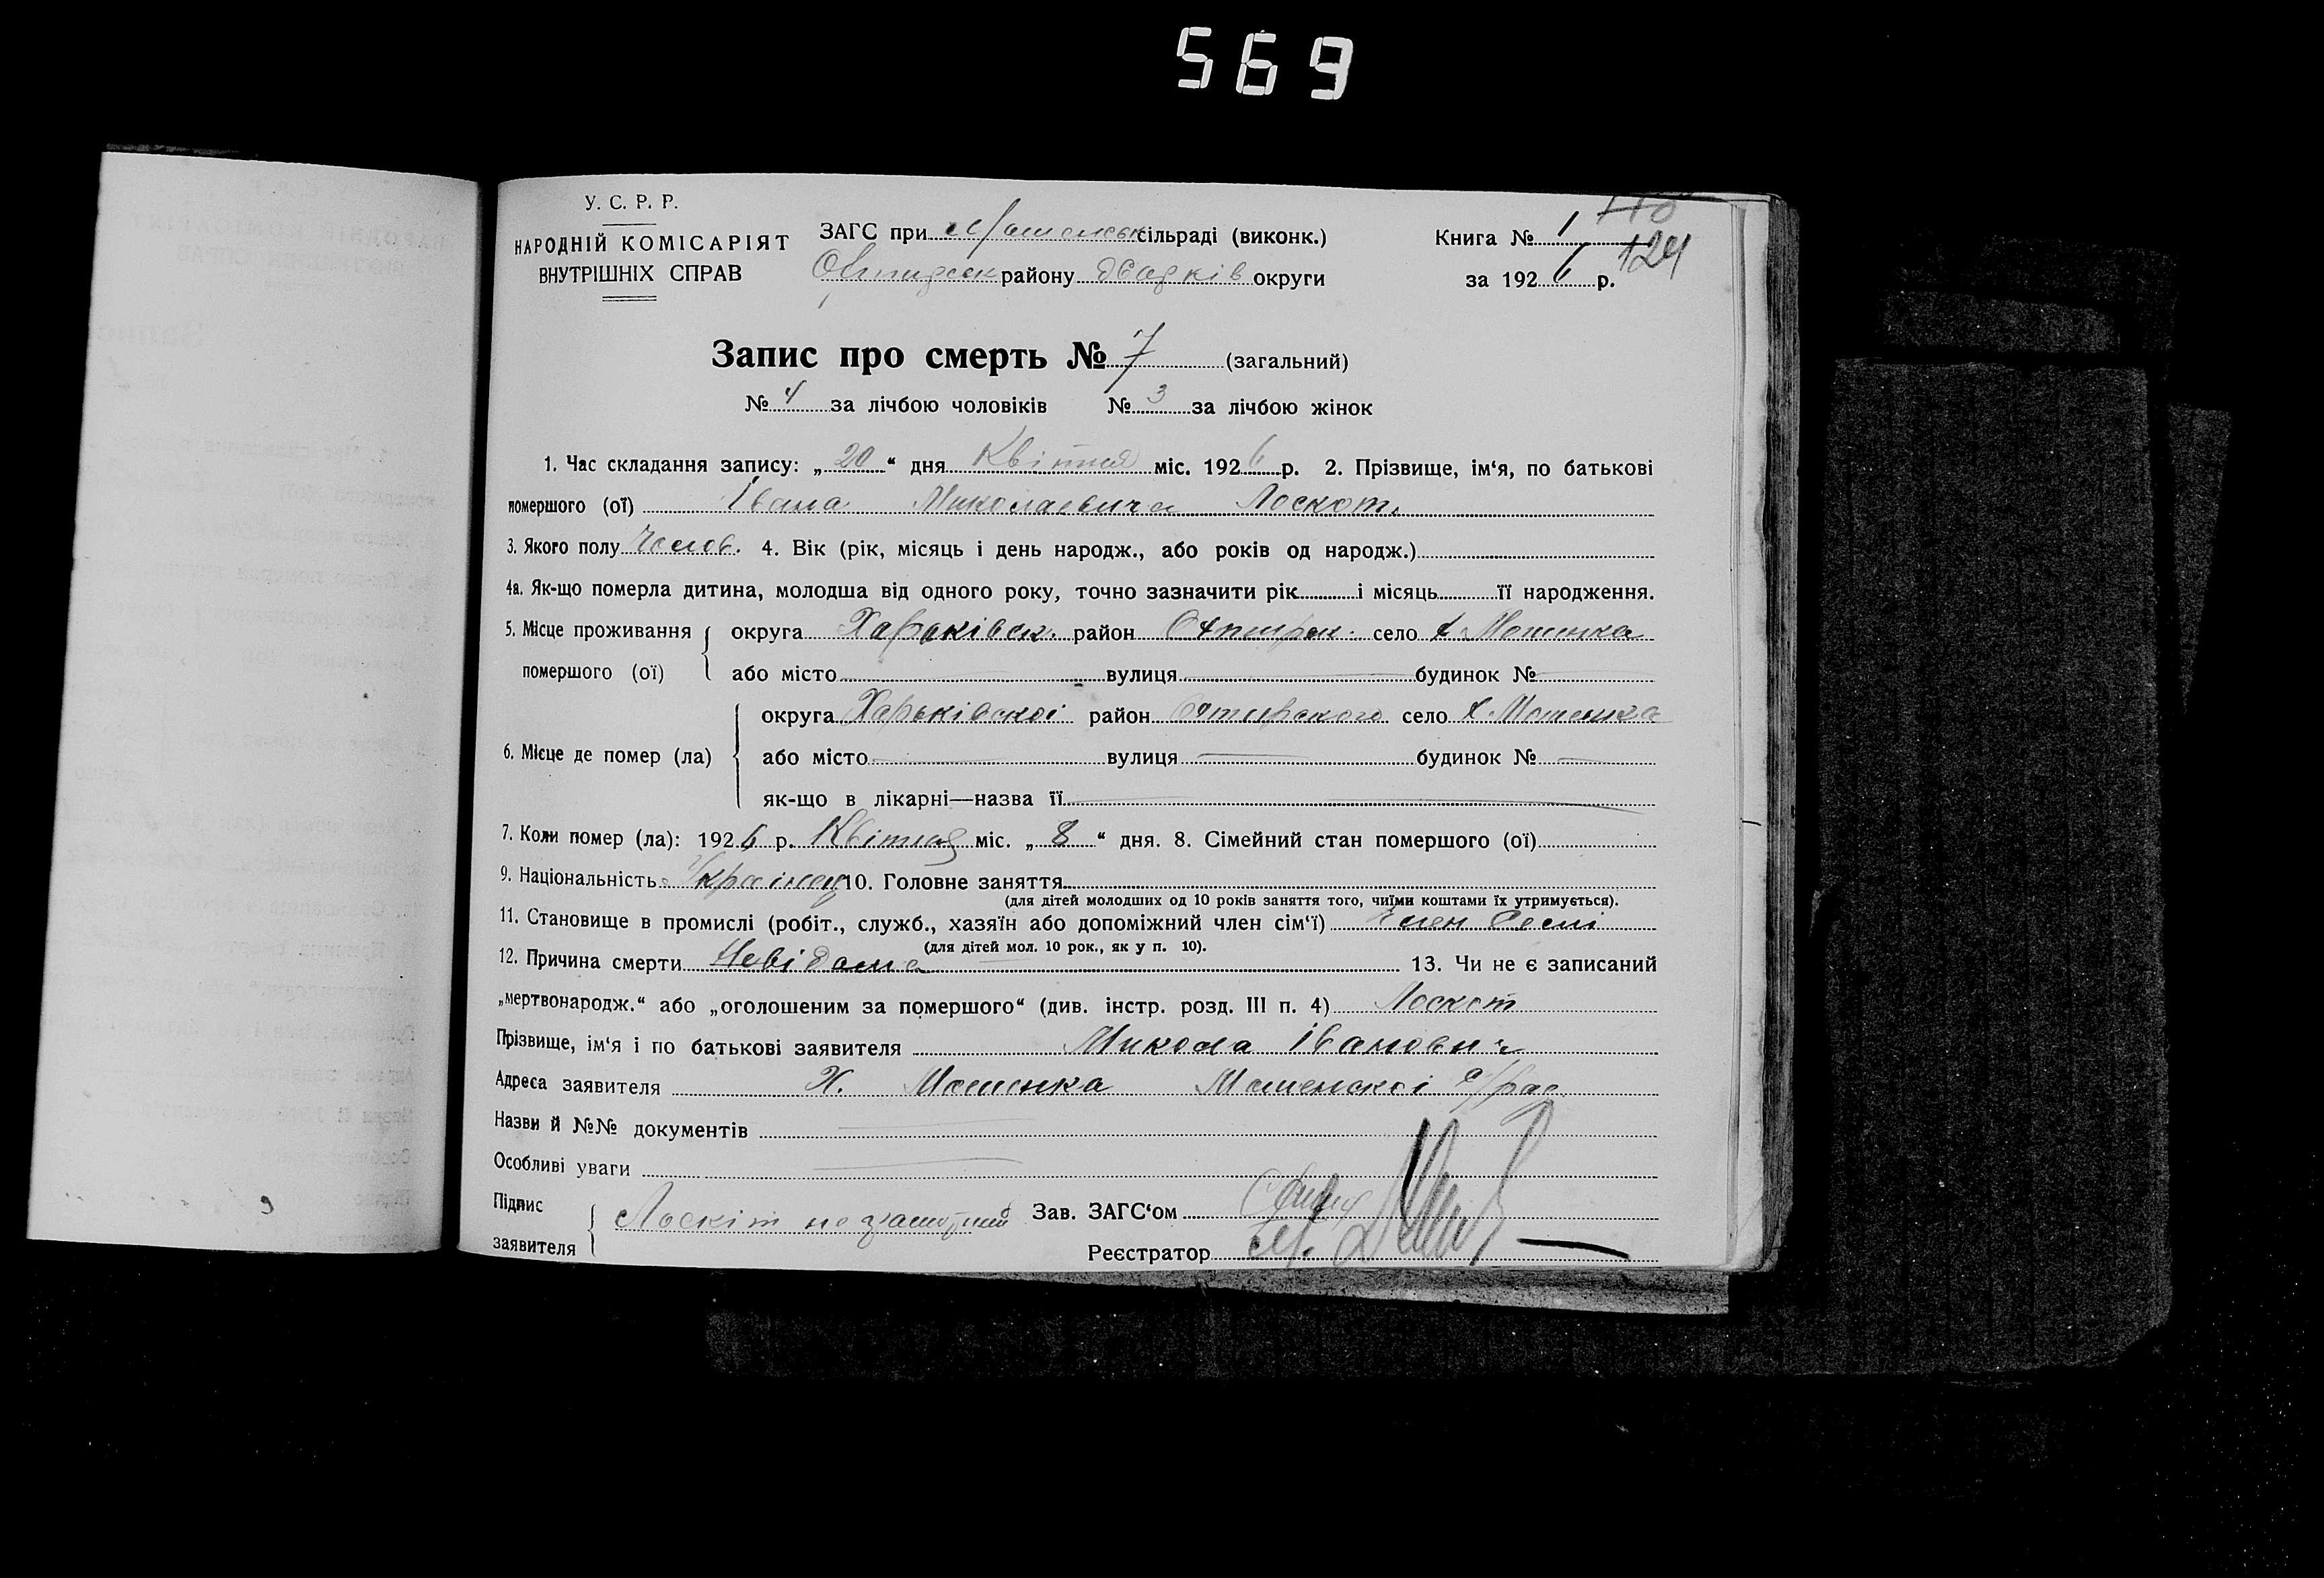 569
У. С. Р. Р.
НАРОДНІЙ КОМІСАРІЯТ
ВНУТРІШНІХ СПРАВ
ЗАГС при сільраді (виконк.)
району округи
Книга № 1
124
за 1926 р.
Запис про смерть № 7 (загальний)
№ 4 за лічбою чоловіків № 3 за лічбою жінок
1. Час складання запису: „ 20 “ дня Квітня міс. 1926 р. 2. Прізвище, ім‘я, по батькові
помершого (ої) Івана Миколаевича Лоскот
3. Якого полу Чолов. 4. Вік (рік, місяць і день народж., або років од народж.)
4а. Як-що померла дитина, молодша від одного року, точно зазначити рік і місяць її народження.
5. Місце проживання помершого (ої) округа Харьківск. район село х. Мошенка
або місто вулиця будинок №
6. Місце де помер (ла) округа Харьківскоі район село х. Мошенка
або місто вулиця будинок №
як-що в лікарні—назва її
7. Коли помер (ла): 1926 р. Квітня міс. „ 8 “ дня. 8. Сімейний стан помершого (ої)
9. Національність Українец 10. Головне заняття
(для дітей молодших од 10 років заняття того, чиїми коштами їх утримується).
11. Становище в промислі (робіт., служб., хазяїн або допоміжний член сім‘ї) Член
(для дітей мол. 10 рок., як у п. 10).
12. Причина смерти Невідома 13. Чи не є записаний
„мертвонародж.“ або „оголошеним за помершого“ (див. інстр. розд. III п. 4) Лоскот
Прізвище, ім‘я і по батькові заявителя Микола Іванович
Адреса заявителя Х. Мошенка Мошенскоі с/рад
Назви й №№ документів
Особливі уваги
Підпис заявителя Лоскіт Зав. ЗАГС‘ом
Реєстратор